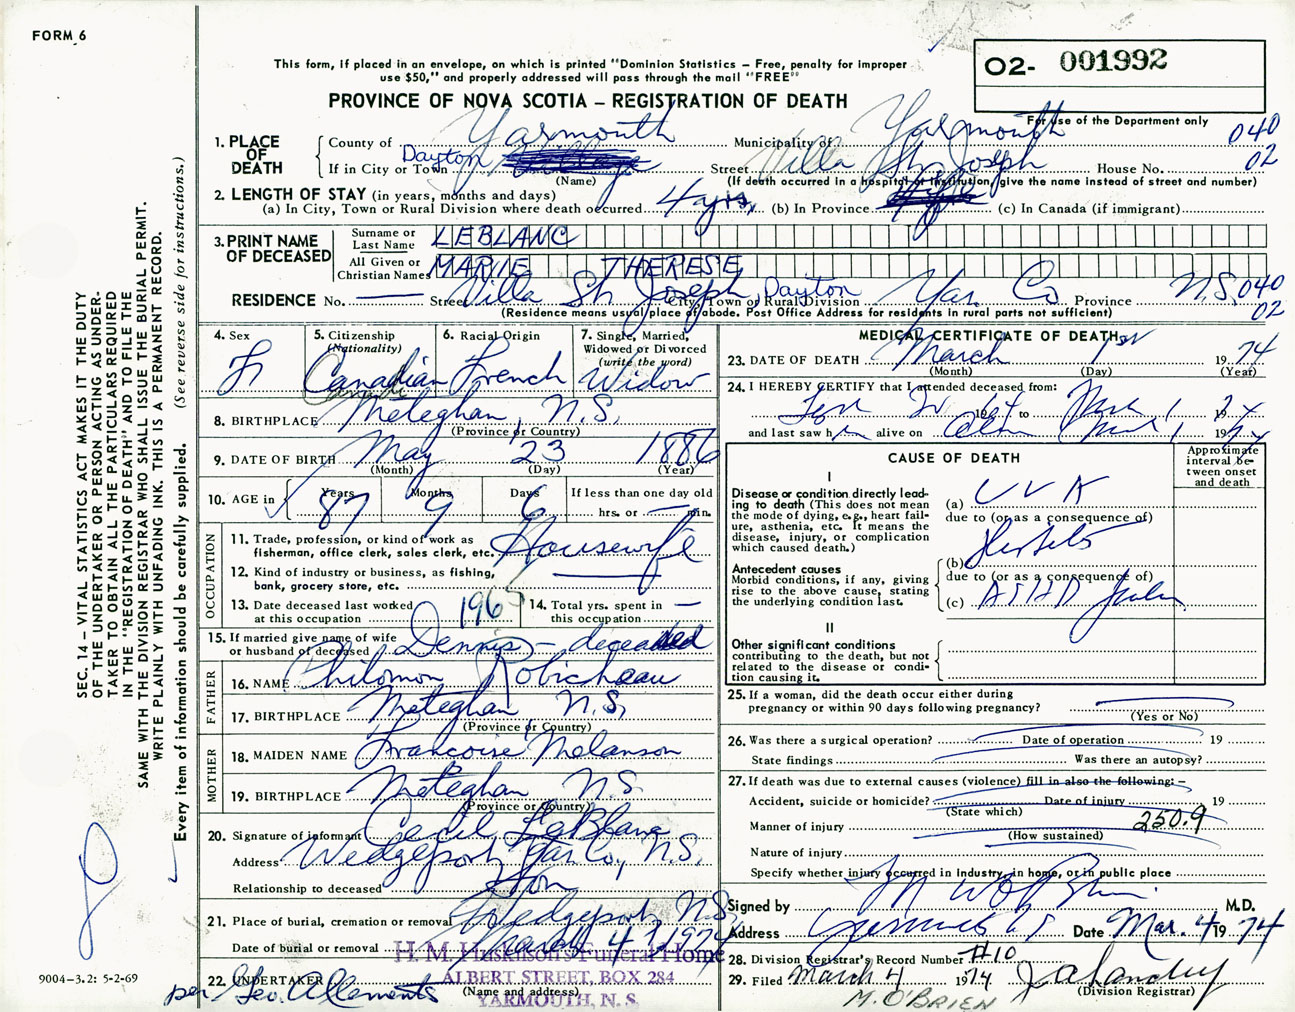 FORM 6
This form, if placed in an envelope, on which is printed "Dominion Statistics - Free, penalty for improper
use $50," and properly addressed will pass through the mail "FREE"
PROVINCE OF NOVA SCOTIA – REGISTRATION OF DEATH
O2- 001992
For use of the Department only
1. PLACE OF DEATH
County of Yarmouth Municipality of Yarmouth 040
If in City or Town Dayton Street Villa St. Joseph House No. 02
(Name) (If death occurred in a hospital or institution, give the name instead of street and number)
2. LENGTH OF STAY (in years, months and days)
(a) In City, Town or Rural Division where death occurred 4 yrs, (b) In Province (c) In Canada (if immigrant)
3. PRINT NAME OF DECEASED
Surname or Last Name LEBLANC
All Given or Christian Names MARIE THERESE
RESIDENCE No. — Street Villa St. Joseph City, Town or Rural Division Dayton Yar. Co Province N.S. 040
(Residence means usual place of abode. Post Office Address for residents in rural parts not sufficient) 02
4. Sex F
5. Citizenship (Nationality) Canadian
6. Racial Origin French
7. Single, Married, Widowed or Divorced (write the word) Widow
8. BIRTHPLACE Meteghan, N.S.
(Province or Country)
9. DATE OF BIRTH May 23 1886
(Month) (Day) (Year)
10. AGE in Years 87 Months 9 Days 6 If less than one day old
hrs. or — min.
OCCUPATION
11. Trade, profession, or kind of work as fisherman, office clerk, sales clerk, etc. Housewife
12. Kind of industry or business, as fishing, bank, grocery store, etc. —
13. Date deceased last worked at this occupation 1965
14. Total yrs. spent in this occupation —
15. If married give name of wife or husband of deceased Dennis – deceased
FATHER
16. NAME Philomon Robicheau
17. BIRTHPLACE Meteghan N.S.
(Province or Country)
MOTHER
18. MAIDEN NAME Francoise Melanson
19. BIRTHPLACE Meteghan N.S.
(Province or Country)
20. Signature of informant Cecil LeBlanc
Address Wedgeport Yar Co, N.S.
Relationship to deceased Son
21. Place of burial, cremation or removal Wedgeport N.S.
Date of burial or removal March 4 1974
H. M. Huskilson's Funeral Home
ALBERT STREET, BOX 284
YARMOUTH, N. S.
22. UNDERTAKER
per/ Geo. A Clements (Name and address)
MEDICAL CERTIFICATE OF DEATH
23. DATE OF DEATH March 1st 1974
(Month) (Day) (Year)
24. I HEREBY CERTIFY that I attended deceased from:
to
and last saw h alive on
CAUSE OF DEATH
Approximate interval between onset and death
I
Disease or condition directly leading to death (This does not mean the mode of dying, e.g., heart failure, asthenia, etc. It means the disease, injury, or complication which caused death.)
(a) CVA
due to (or as a consequence of)
(b)
due to (or as a consequence of)
(c) ASHD
Antecedent causes
Morbid conditions, if any, giving rise to the above cause, stating the underlying condition last.
II
Other significant conditions
contributing to the death, but not related to the disease or condition causing it.
25. If a woman, did the death occur either during pregnancy or within 90 days following pregnancy?
(Yes or No)
26. Was there a surgical operation? Date of operation 19
State findings Was there an autopsy?
27. If death was due to external causes (violence) fill in also the following: –
Accident, suicide or homicide? Date of injury 19
(State which)
Manner of injury 250.9
(How sustained)
Nature of injury
Specify whether injury occurred in Industry, in home, or in public place
Signed by M.D.
Address Date Mar. 4 1974
28. Division Registrar's Record Number #10
29. Filed March 4 1974
(Division Registrar)
M. O'BRIEN
SEC. 14 – VITAL STATISTICS ACT MAKES IT THE DUTY
OF THE UNDERTAKER OR PERSON ACTING AS UNDER-
TAKER TO OBTAIN ALL THE PARTICULARS REQUIRED
IN THE "REGISTRATION OF DEATH" AND TO FILE THE
SAME WITH THE DIVISION REGISTRAR WHO SHALL ISSUE THE BURIAL PERMIT.
WRITE PLAINLY WITH UNFADING INK. THIS IS A PERMANENT RECORD.
Every item of information should be carefully supplied. (See reverse side for instructions.)
9004-3.2: 5-2-69